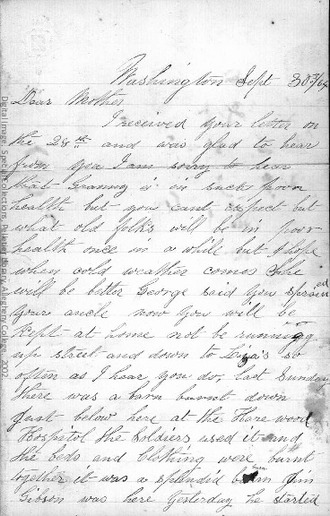 Washington Sept 30th/64
Dear Mother
I received your letter on
the 28th and was glad to hear
from you I am sorry to hear
that Granny is in such poor
health but you cant expect but
what old folks will be in poor
health once in a while but I hope
when cold weather comes she
will be better George said you sprained
your ancle now you will be
Kept at home not be running
up street and down to Liza's so
often as I hear you do, last Sunday
there was a barn burnt down
Just below here at the Hare wood
Hospitol the Soldiers used it and
the beds and Clothing were burnt
together it was a splendid barn Jim
Gibson was here yesterday he started
Digital Image, Special Collections, Pelletier Library, Allegheny College, 2002